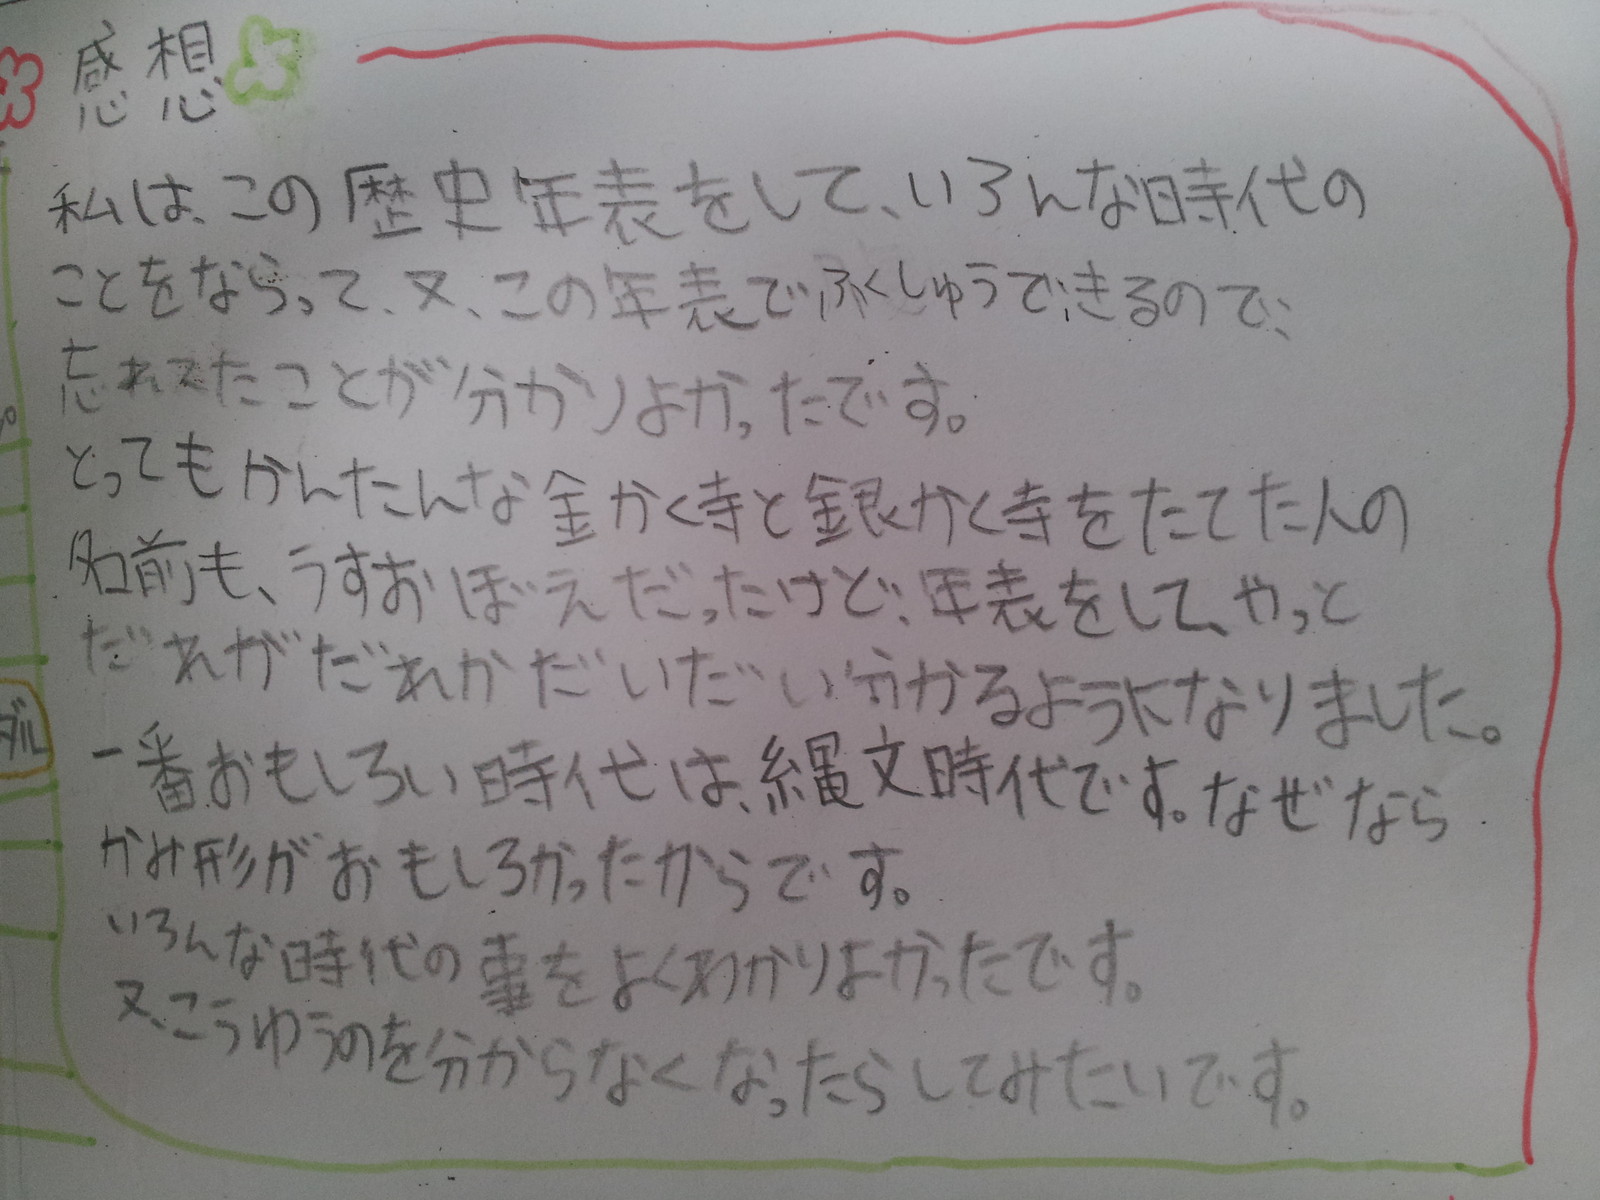 感想
私は、この歴史年表をして、いろんな時代の
ことをならって、又、この年表でふくしゅうできるので、
忘れてたことが分かりよかったです。
とってもかんたんな金かく寺と銀かく寺をたてた人の
名前も、うすおぼえだったけど、年表をして、やっと
だれがだれかだいだい分かるようになりました。
一番おもしろい時代は、縄文時代です。なぜなら
かみ形がおもしろかったからです。
いろんな時代の事をよくわかりよかったです。
又、こうゆうのを分からなくなったらしてみたいです。
ダル